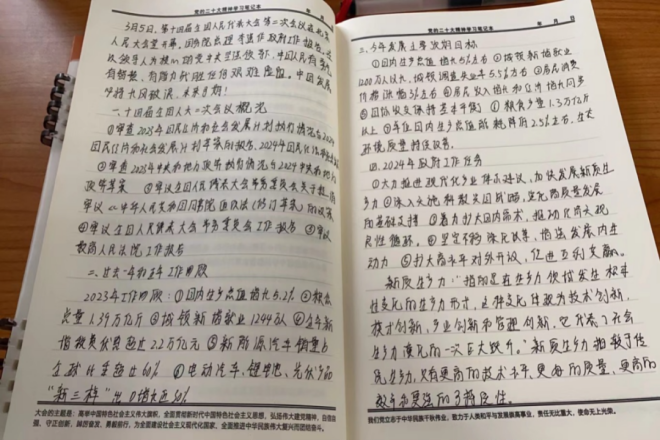 党的二十大精神学习笔记本
3月5日,第十四届全国人民代表大会第二次会议在北京
人民大会堂开幕,国务院总理李强作政府工作报告。
有韧量,有潜力
乘风破浪、未来可期!
一、十四届全国人大二次会议概况
①审查2023年国民经济和社会发展计划执行情况与2024
国民经济和社会发展计划草案的报告、2024年国民经济
②审查2023年中央和地方预算执行情况与2024中央和地方
政预算草案 ③审议全国人民代表大会常务委员会关于提请
审议《中华人民共和国国务院组织法(修订草案)》的议案
④审议全国人民代表大会常务委员会工作报告 ⑤审议
最高人民法院工作报告
二、过去一年的工作回顾
2023年工作回顾:①国内生产总值增长5.2% ②粮食
总量1.39万亿斤 ③城镇新增就业1244万 ④全年新
增税费优惠超过2.2万亿元 ⑤新能源汽车销量占
全球比重超过60% ⑥电动汽车、锂电池、光伏产品
“新三样”出口增长近30%
大会的主题是:高举中国特色社会主义伟大旗帜,全面贯彻新时代中国特色社会主义思想,弘扬伟大建党精神,自信自
强、守正创新,踔厉奋发、勇毅前行,为全面建设社会主义现代化国家、全面推进中华民族伟大复兴而团结奋斗。
党的二十大精神学习笔记本
年 月 日
三、今年发展主要预期目标
①国内生产总值增长5%左右 ②城镇新增就业
1200万人以上,城镇调查失业率5.5%左右 ③居民消费
价格涨幅3%左右 ④居民收入增长和经济增长同步
⑤国际收支保持基本平衡 ⑥粮食产量1.3万亿斤
以上 ⑦单位国内生产总值能耗降低2.5%左右,生态
环境质量持续改善。
四、2024年政府工作任务
①大力推进现代化产业体系建设,加快发展新质生
产力 ②深入实施科教兴国战略,强化高质量发展
的基础支撑 ③着力扩大国内需求,推动经济实现
良性循环 ④坚定不移深化改革,增强发展内生
动力 ⑤扩大高水平对外开放,促进互利共赢。
新质生产力:“指的是在生产力
性变化的生产力形式,这种变化体现为技术创新,
模式创新,产业创新和管理创新,它代表了社会
生产力演化的一次巨大跃升。”新质生产力相较于传
统生产力,具有更高的技术水平、更好的质量、更高的
效率和更强的
我们党立志于中华民族千秋伟业,致力于人类和平与发展崇高事业,责任无比重大,使命无上光荣。